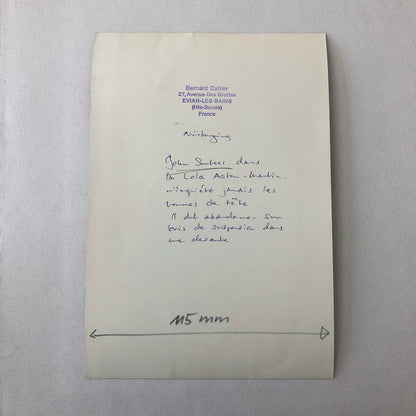 Bernard Cahier
37, Avenue Des Grottes
EVIAN-LES-BAINS
(Hte-Savoie)
France
Nürburgring
John Surtees dans
la Lola Aston-Martin
n'inquiéta jamais les
hommes de tête.
Il dut abandonner sur
bris de suspension dans
une descente.
115 mm